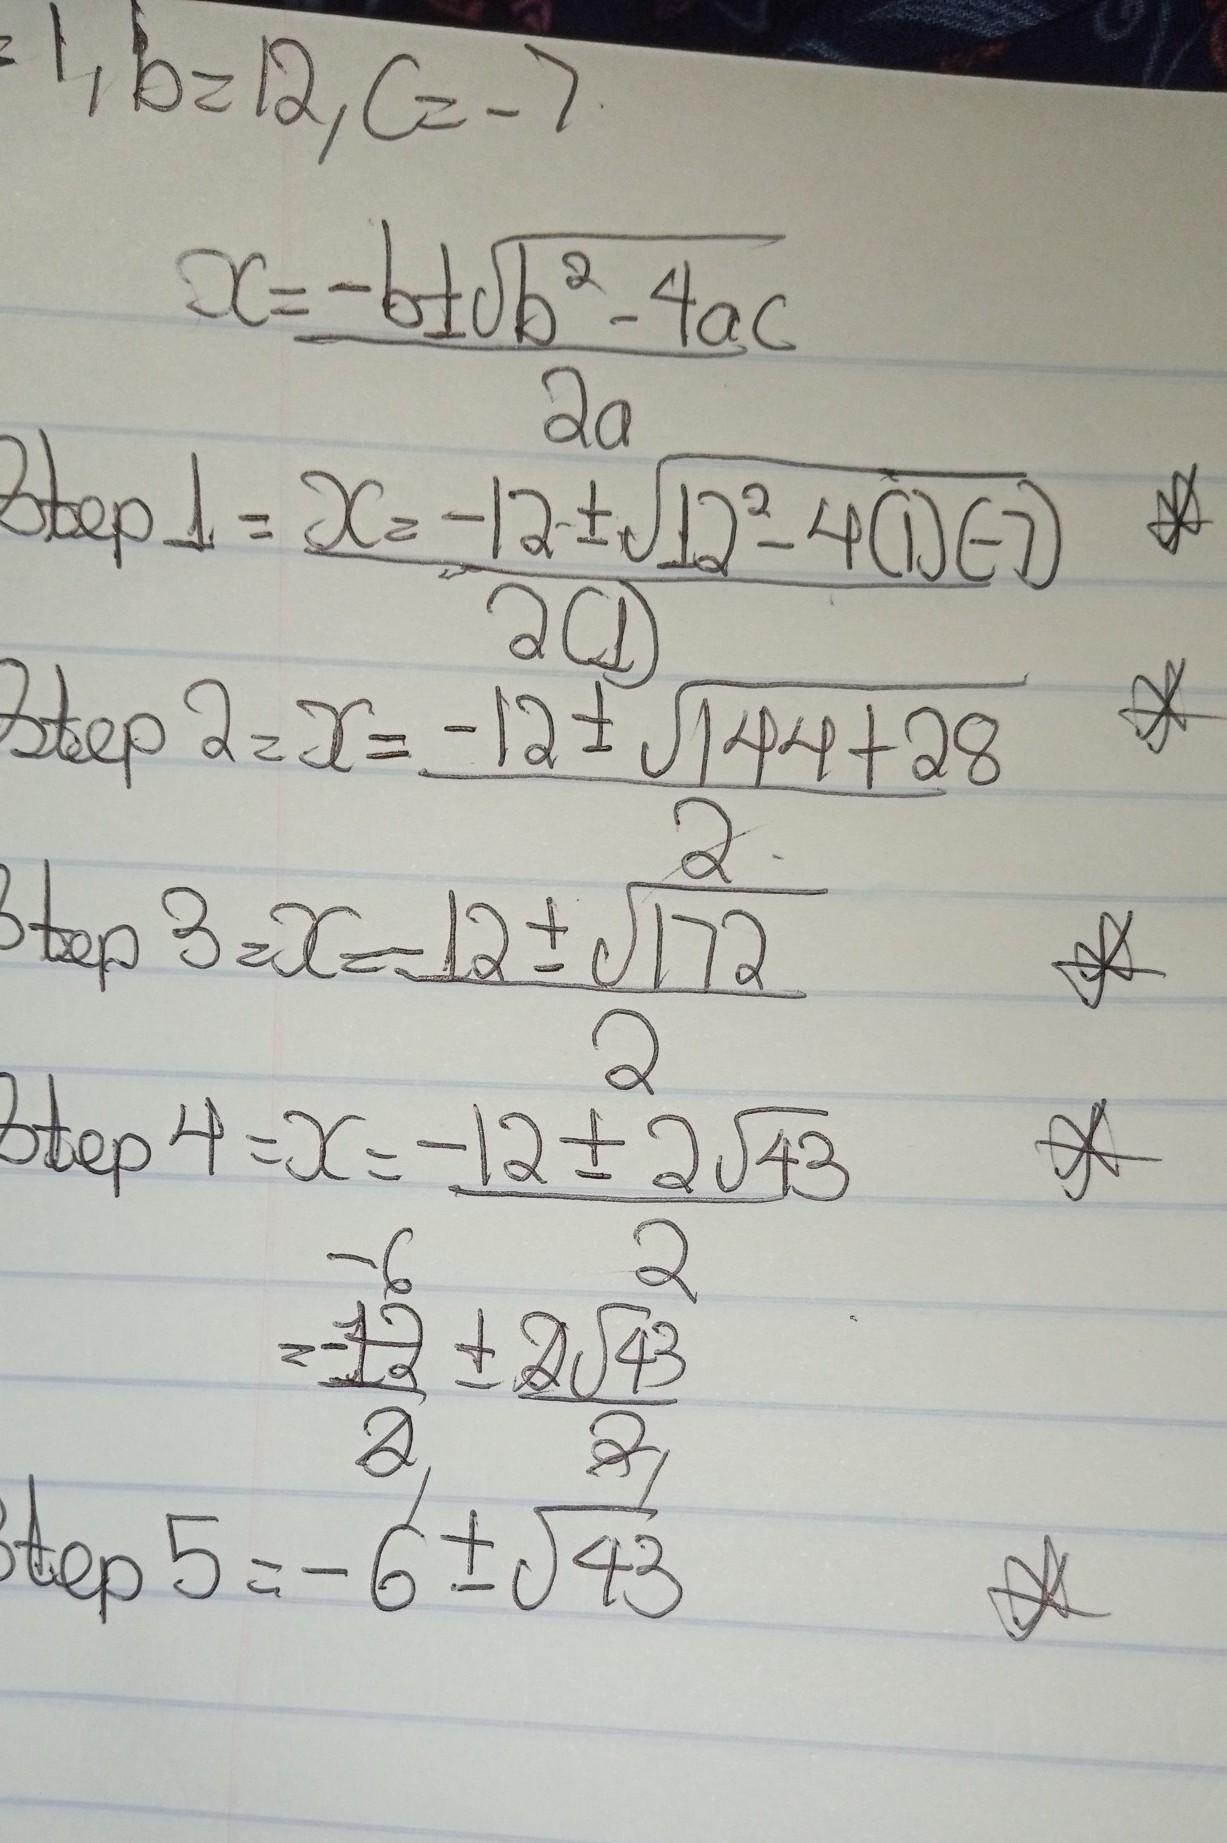 = 1, b = 12, C = -7.
x = -b ± √b² - 4ac
2a
Step 1 = x = -12 ± √12² - 4(1)(-7)
2(1)
Step 2 = x = -12 ± √144 + 28
2
Step 3 = x = -12 ± √172
2
Step 4 = x = -12 ± 2√43
2
-6
= -12 ± 2√43
2 2
Step 5 = -6 ± √43